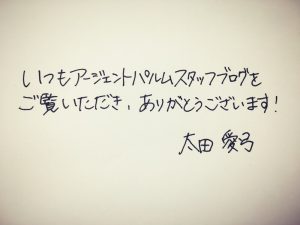 いつもアージェントパルムスタッフブログを
ご覧いただき、ありがとうございます!
太田 愛弓